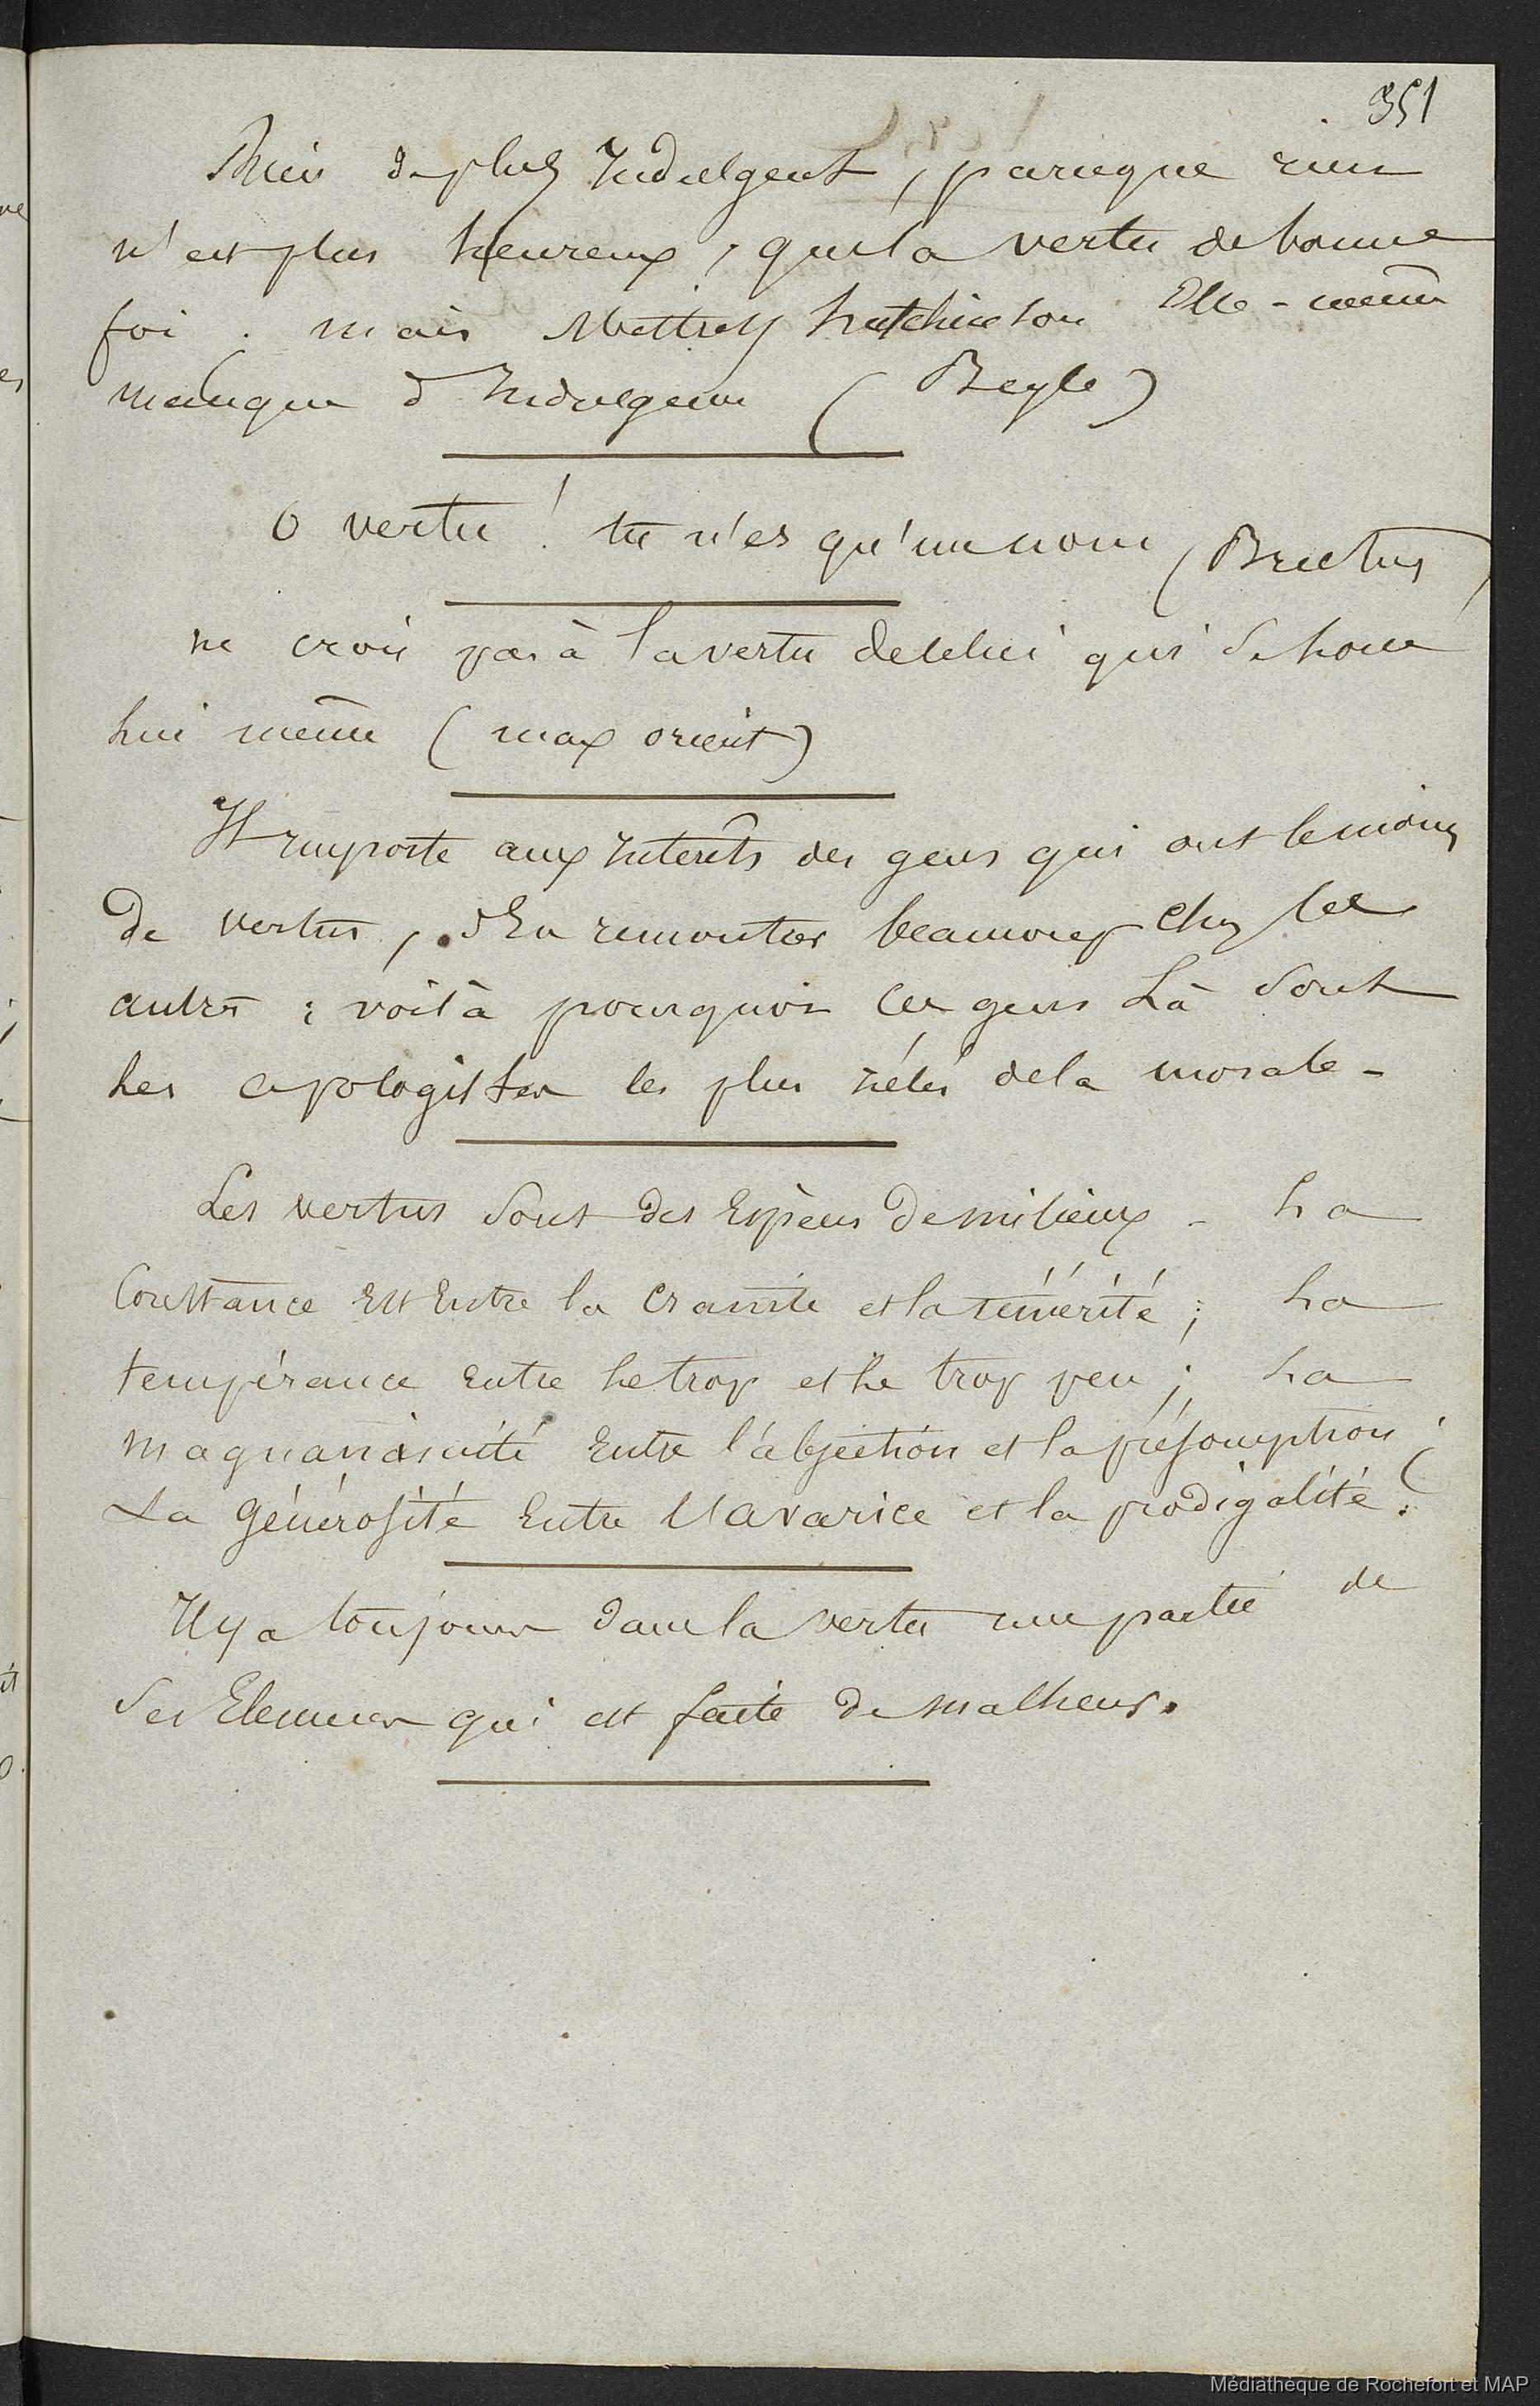 351
Rien de plus Indulgent, parceque rien
n'est plus heureux, que la vertu de bonne
foi. mais Mettress hutchinson Elle-même
manque d'Indulgence (Beyle)
O vertu! tu n'es qu'un nom (Brutus)
ne crois pas à la vertu de celui qui se loue
lui même (max orient)
Il importe aux intérêts des gens qui ont le moins
de vertus, d'En remontrer beaucoup chez les
autres : voilà pourquoi ces gens Là sont
les apologistes les plus zélés de la morale -
Les vertus sont des Espèces de milieux - La
Constance Est Entre la crainte et la témérité ; La
tempérance entre le trop et le trop peu ; La
magnanimité Entre l'abjection et la présomption ;
La générosité Entre l'avarice et la prodigalité.
Il y a toujours dans la vertu une partie de
ses Elemens qui est faite de malheur.
Médiathèque de Rochefort et MAP